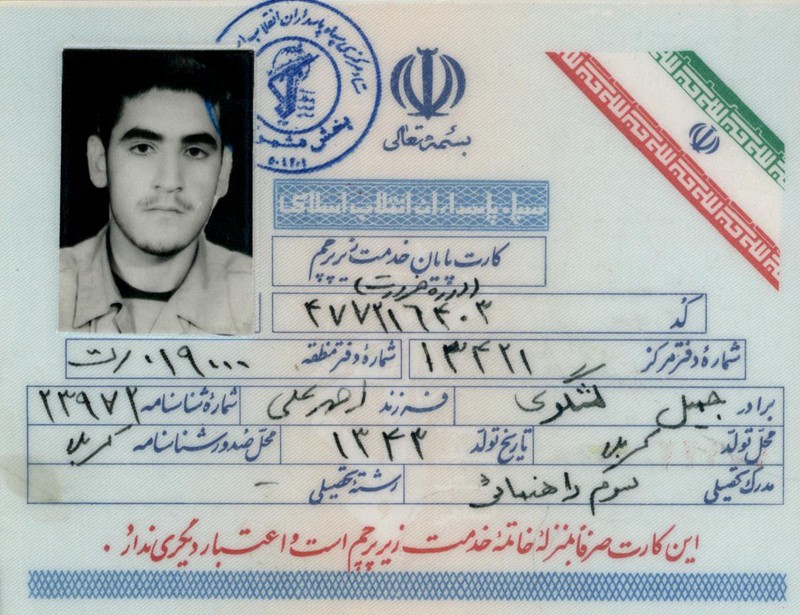 ستاد مرکزی سپاه پاسداران انقلاب
بخش مشمو
بسمه تعالی
سپاه پاسداران انقلاب اسلامی
کارت پایان خدمت زیر پرچم
(دوره ضرورت)
کد ۴۷۷۲۱۶۴۰۳
شمارهٔ دفتر مرکز ۱۳۴۲۱ شمارهٔ دفتر منطقه ۰۱۹۰۰۰
برادر جمیل لشگری فرزند احمد علی شماره شناسنامه ۲۳۹۷۲
محل تولد کربلا تاریخ تولد ۱۳۴۳ محل صدور شناسنامه کربلا
مدرک تحصیلی سوم راهنمائی رشتهٔ تحصیلی -
این کارت صرفاً بمنزلهٔ خاتمهٔ خدمت زیر پرچم است و اعتبار دیگری ندارد .